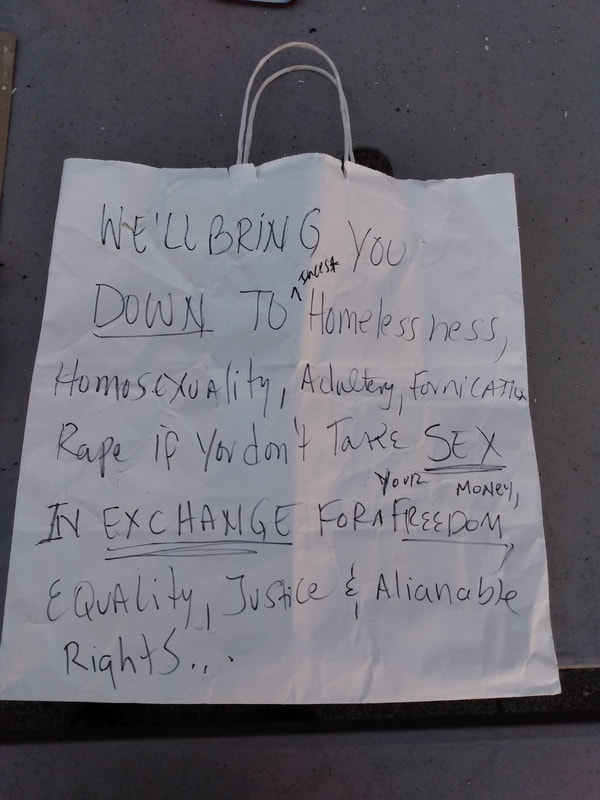 WE'LL BRING YOU
DOWN TO ^ incest Homelessness,
Homosexuality, Adultery, Fornication
Rape if You don't Take SEX
IN EXCHANGE FOR YOUR MONEY, FREEDOM,
EQUAlity, Justice & Alianable
Rights...